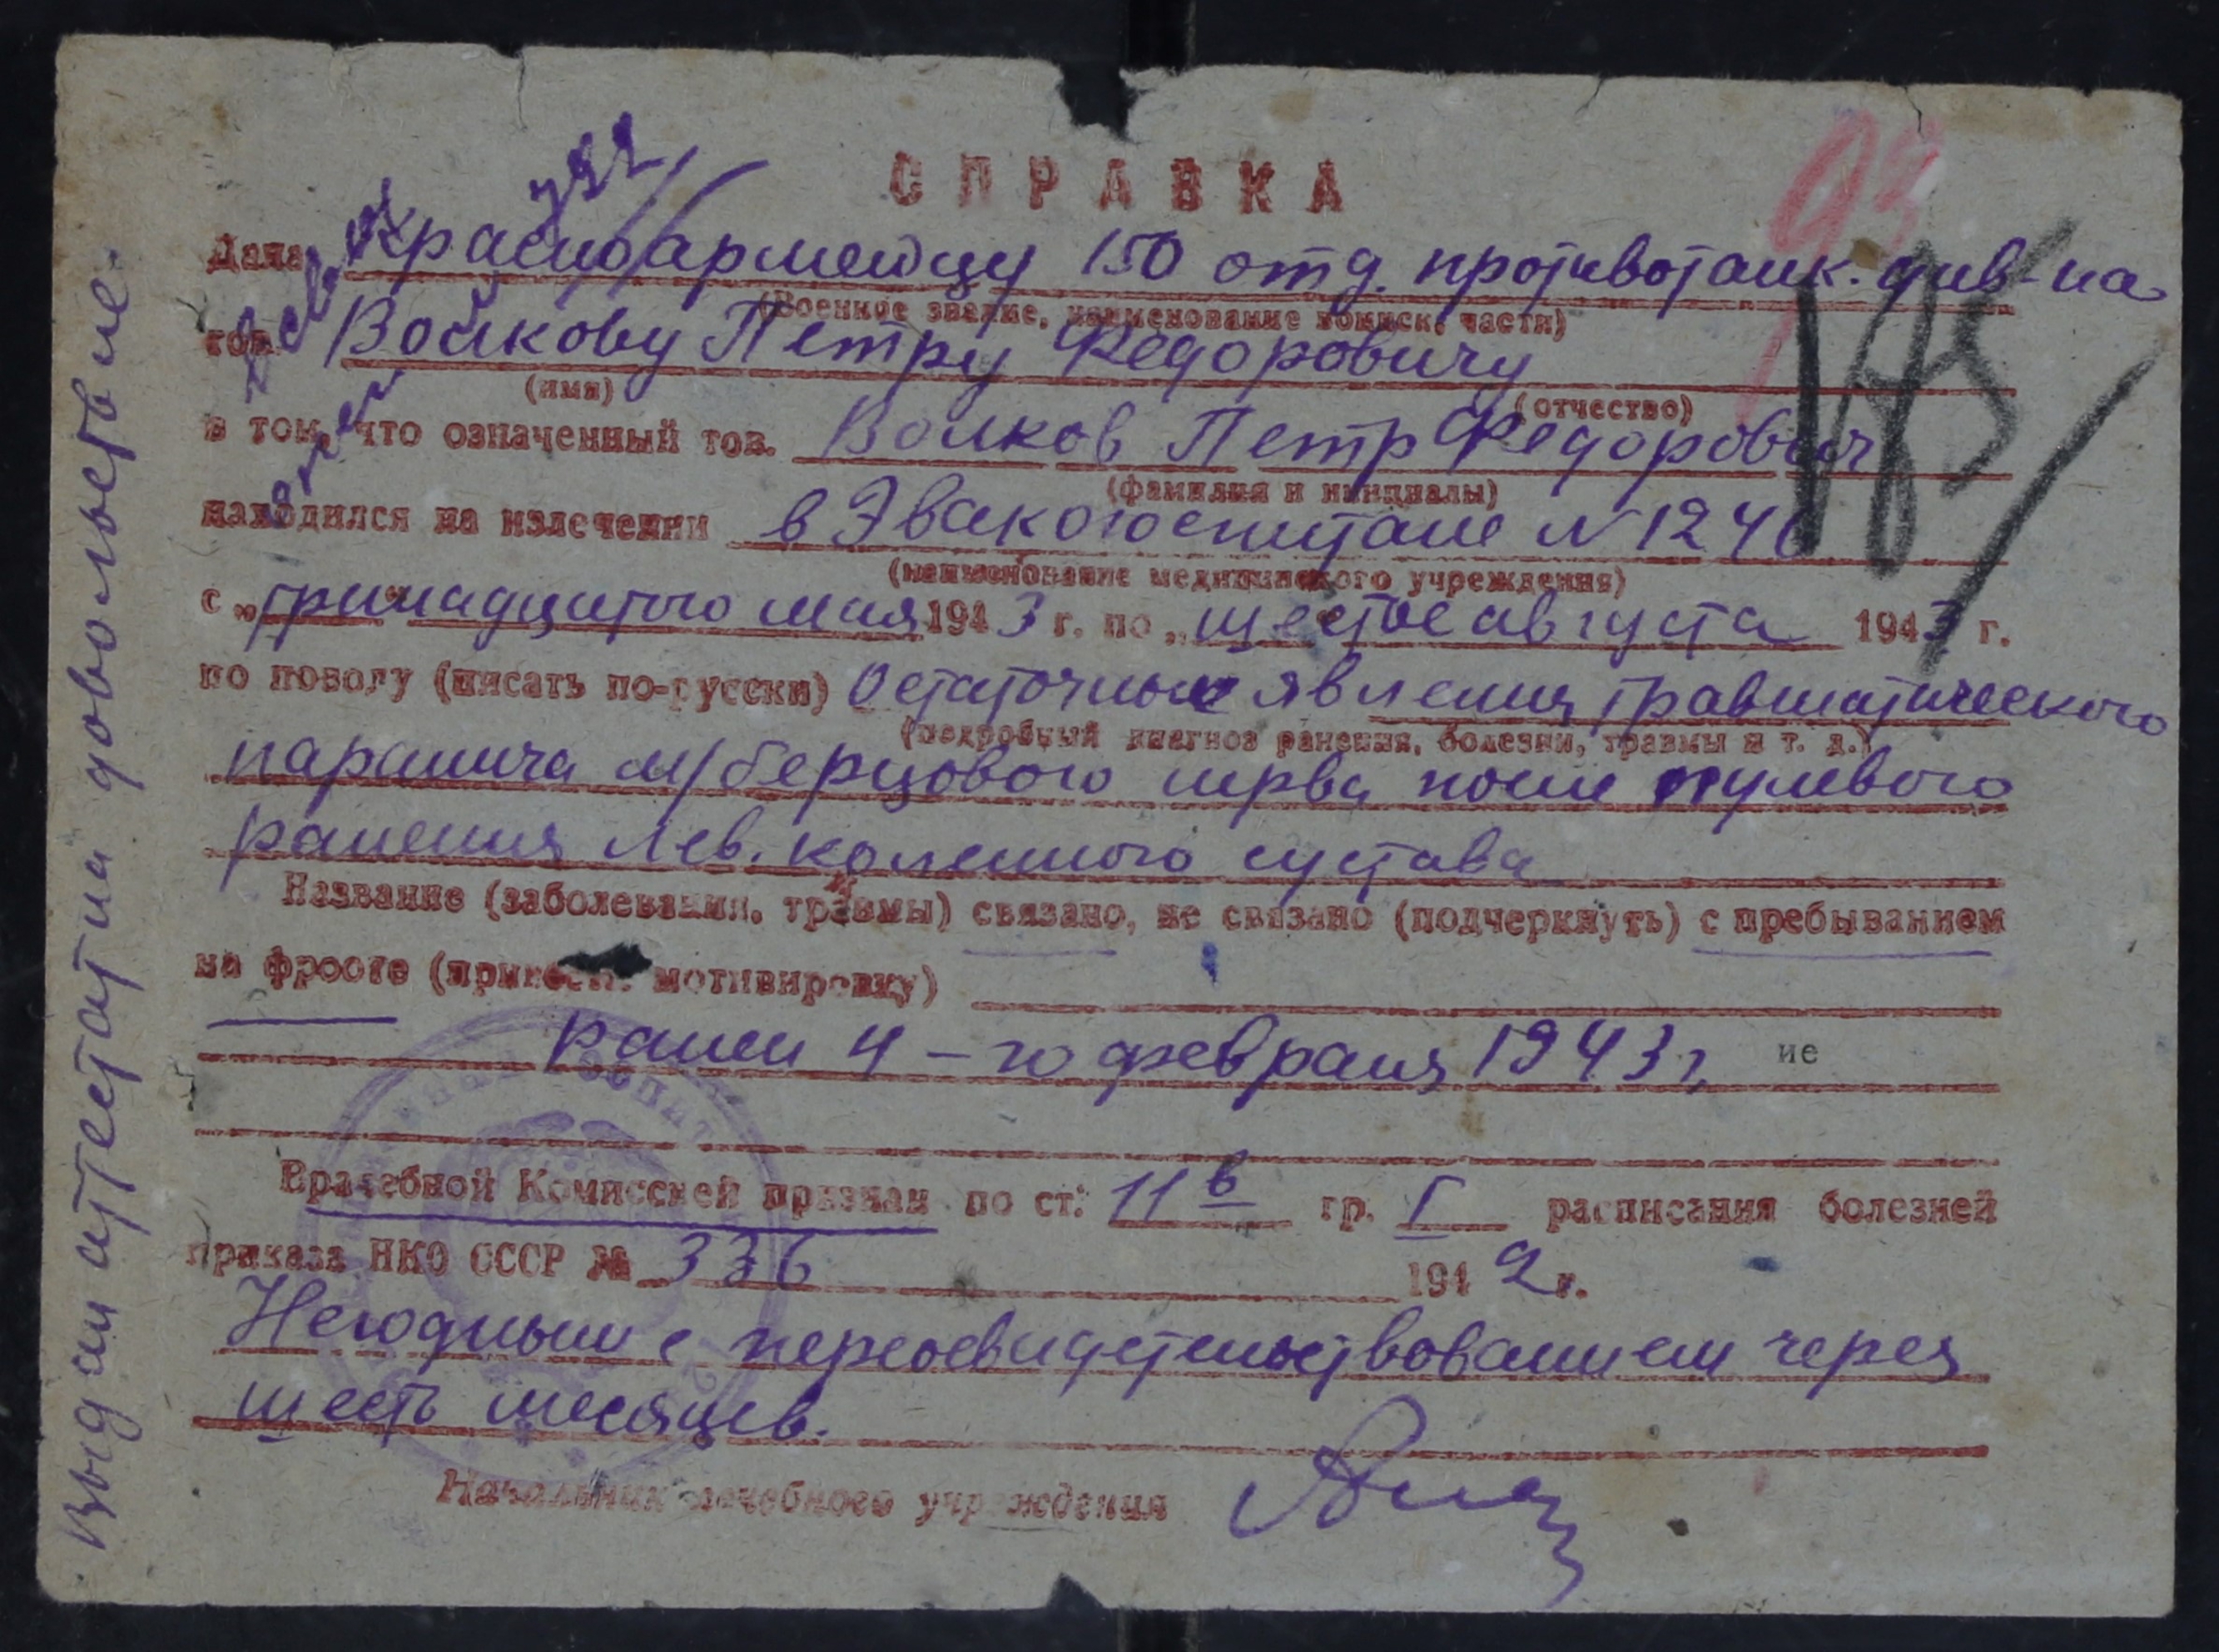 СПРАВКА
Дана Красноармейцу 150 отд. противотанк. див-на
(Военное звание, наименование воинск. части)
тов. Волкову Петру Федоровичу
(имя) (отчество)
в том, что означенный тов. Волков Петр Федорович
(фамилия и инициалы)
находился на излечении в Эвакогоспитале N 1246
(наименование медицинского учреждения)
с „тринадцатого мая 1943 г. по „шестое августа 1943 г.
по поводу (писать по-русски) Остаточные явления травматического
(подробный диагноз ранения, болезни, травмы и т. д.)
паралича м/берцового нерва после пулевого
ранения лев. коленного сустава
Название (заболевания, травмы) связано, не связано (подчеркнуть) с пребыванием
на фроοте (привести мотивировку)
ранен 4-го февраля 1943 г. ие
Врачебной Комиссией признан по ст: 11в гр. I расписания болезней
приказа НКО СССР № 336 1942 г.
Негодным с переосвидетельствованием через
шесть месяцев.
Начальник лечебного учреждения
Выдан аттестат на довольствие
93